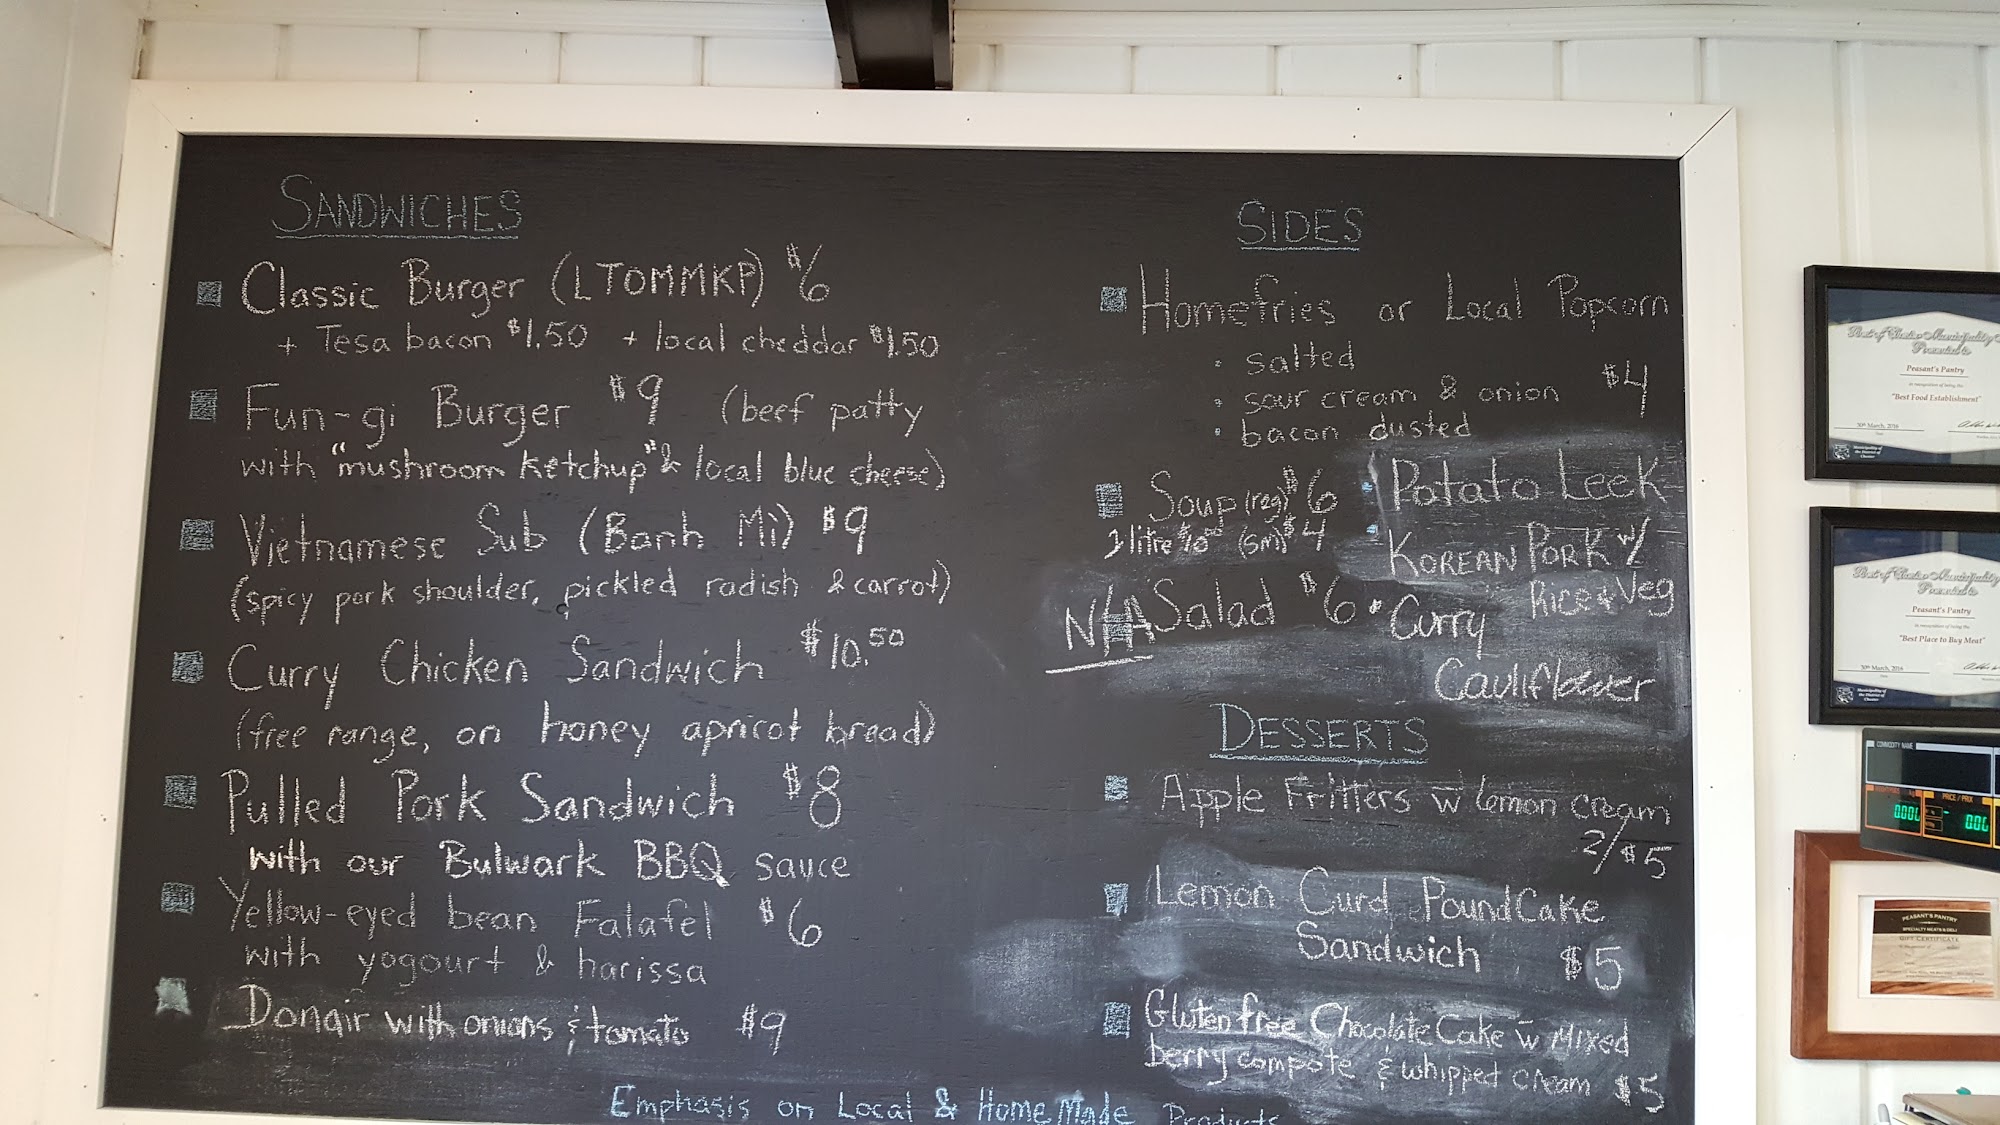 SANDWICHES
Classic Burger (LTOMMKP) $6
+ Tesa bacon $1.50 + local cheddar $1.50
Fun-gi Burger $9 (beef patty
with "mushroom ketchup" & local blue cheese)
Vietnamese Sub (Banh Mì) $9
(spicy pork shoulder, pickled radish & carrot)
Curry Chicken Sandwich $10.50
(free range, on honey apricot bread)
Pulled Pork Sandwich $8
with our Bulwark BBQ sauce
Yellow-eyed bean Falafel $6
with yogourt & harissa
Donair with onions & tomato $9
SIDES
Homefries or Local Popcorn
• salted
• sour cream & onion $4
• bacon dusted
Soup (reg) $6 • Potato Leek
1 litre $10.00 (sm) $4 • KOREAN PORK w/
Rice & Veg
N/A Salad $6 • Curry
Cauliflower
DESSERTS
Apple Fritters w lemon cream
2/$5
Lemon Curd Pound Cake
Sandwich $5
Gluten free Chocolate Cake w Mixed
berry compote & whipped cream $5
Emphasis on Local & HomeMade Products
Peasant's Pantry
"Best Food Establishment"
30th March, 2016
Municipality of
the District of
Chester
Peasant's Pantry
"Best Place to Buy Meat"
30th March, 2016
Municipality of
the District of
Chester
COMMODITY NAME
PRICE/PRIX
0.00
PEASANT'S PANTRY
SPECIALTY MEATS & DELI
GIFT CERTIFICATE